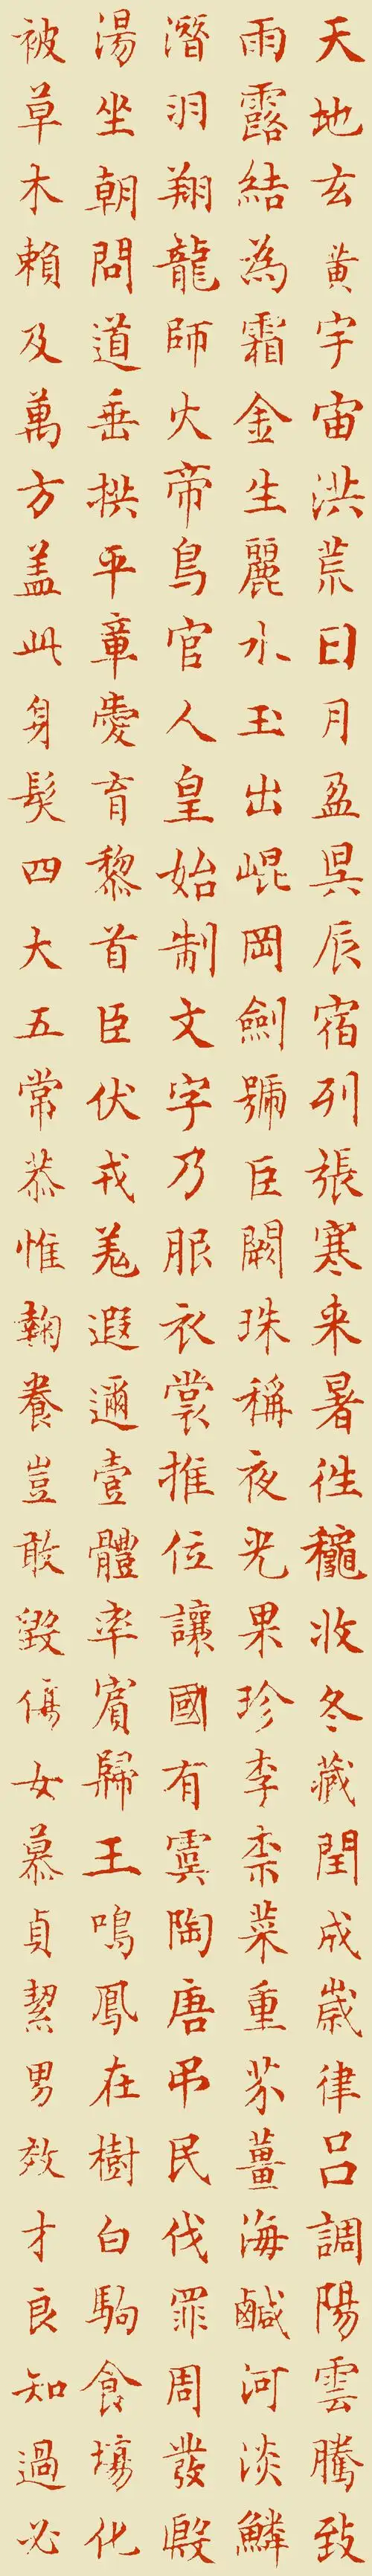 天地玄黃宇宙洪荒日月盈昃辰宿列張寒来暑徃穐收冬藏閏成歲律吕調陽雲騰致
雨露結為霜金生麗水玉出崐岡劍號巨闕珠稱夜光果珍李柰菜重芥薑海鹹河淡鱗
潛羽翔龍師火帝鳥官人皇始制文字乃服衣裳推位讓國有虞陶唐吊民伐罪周發殷
湯坐朝問道垂拱平章愛育黎首臣伏戎羌遐邇壹體率賓歸王鳴鳳在樹白駒食場化
被草木賴及萬方盖此身髮四大五常恭惟鞠養豈敢毀傷女慕貞絜男效才良知過必